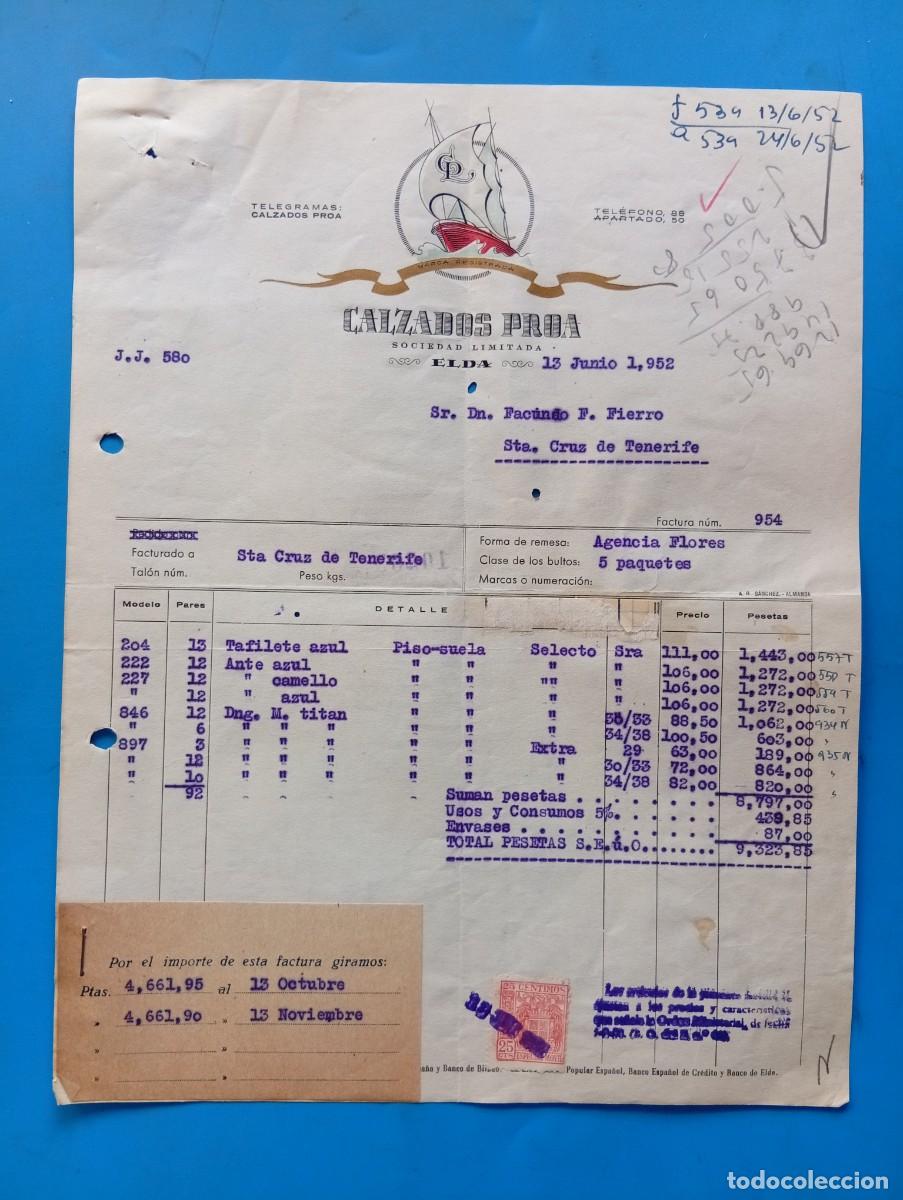 f 534 13/6/52
a 534 24/6/52
TELEGRAMAS:
CALZADOS PROA
CPL
TELÉFONO, 88
APARTADO, 50
MARCA REGISTRADA
CALZADOS PROA
SOCIEDAD LIMITADA
ELDA
J.J. 580
13 Junio 1,952
Sr. Dn. Facundo F. Fierro
Sta. Cruz de Tenerife
Factura núm. 954
Facturado a Sta Cruz de Tenerife
Talón núm. Peso kgs.
Forma de remesa: Agencia Flores
Clase de los bultos: 5 paquetes
Marcas o numeración:
A. R. SÁNCHEZ.-ALMANSA
Modelo Pares DETALLE Precio Pesetas
204 13 Tafilete azul Piso-suela Selecto Sra 111,00 1,443,00 557T
222 12 Ante azul " " " " 106,00 1,272,00 558 T
227 12 " camello " " "" " 106,00 1,272,00 559 T
" 12 " azul " " " " 106,00 1,272,00 560 T
846 12 Dng. M. titan " " " 30/33 88,50 1,062,00 934 N
" 6 " " " " " " 34/38 100,50 603,00 "
897 3 " " " " " Extra 29 63,00 189,00 935 N
" 12 " " " " " " 30/33 72,00 864,00 "
" 10 " " " " " " 34/38 82,00 820,00 "
92 Suman pesetas . . . . . . . . 8,797,00
Usos y Consumos 5%. . . . . . . 439,85
Envases . . . . . . . . . . . 87,00
TOTAL PESETAS S.E.ú.O........ 9,323,85
Por el importe de esta factura giramos:
Ptas. 4,661,95 al 13 Octubre
» 4,661,90 » 13 Noviembre
» »
» »
25 CENTIMOS 25
25 CTS ESPECIAL MOVIL
Los artículos de la presente factura se
ajustan a los precios y características
que señala la Orden Ministerial, de fecha
y Banco de Bilbao. Popular Español, Banco Español de Crédito y Banco de Elda.
todocoleccion